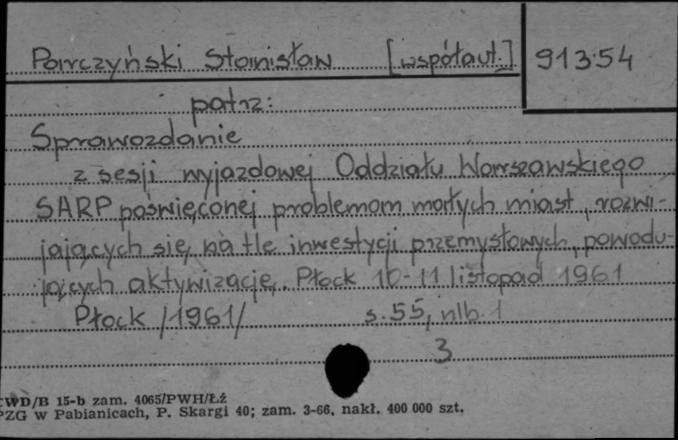 Parczyński Stanisław [współaut.] 913.54
patrz:
Sprawozdanie
z sesji wyjazdowej Oddziału Warszawskiego
SARP poświęconej problemom małych miast, rozwi-
jających się na tle inwestycji przemysłowych, powodu-
jących aktywizację. Płock 10-11 listopad 1961
Płock /1961/ s. 55, nlb. 1
3
CWD/B 15-b zam. 4065/PWH/Łż
PZG w Pabianicach, P. Skargi 40; zam. 3-66, nakł. 400 000 szt.